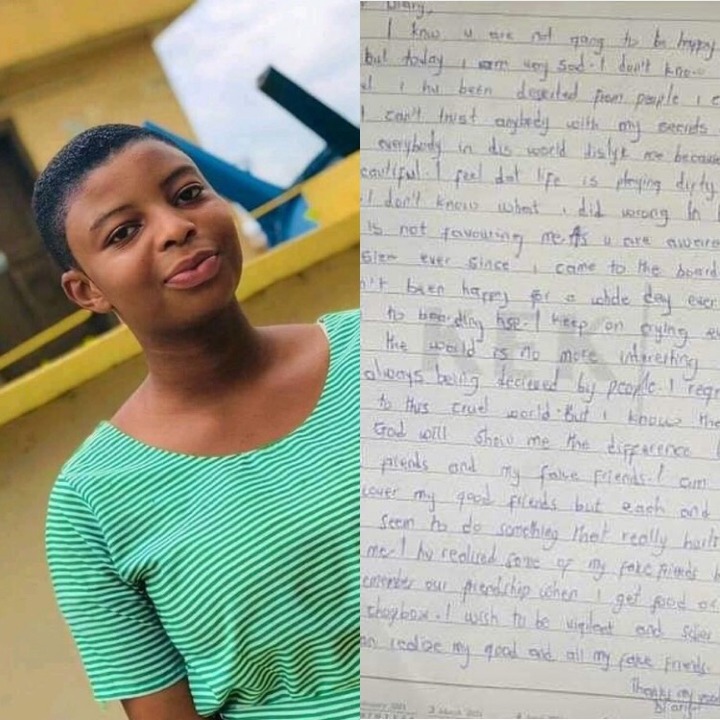 Diary,
I know u are not going to be happy
but today i am very sad. I don't know
I hv been deserted from people i
I can't trust anybody with my secrets
everybody in dis world dislyk me because
eautiful. I feel dat life is playing dirty
. I don't know what i did wrong
is not favouring me. As u are aware
ever since i came to the board
n't been happy for a whole day
to boarding hse. I keep on crying
the world is no more interesting
always being decieved by people. I regr
to this cruel world. But i know the
God will show me the difference
friends and my fake friends. I am
cover my good friends but each and
seem to do something that really hurts
me. I hv realised some of my fake friends
emember our friendship when i get food
chopbox. I wish to be vigilant and
an realize my good and all my fake friends.
Thanks my
Diary